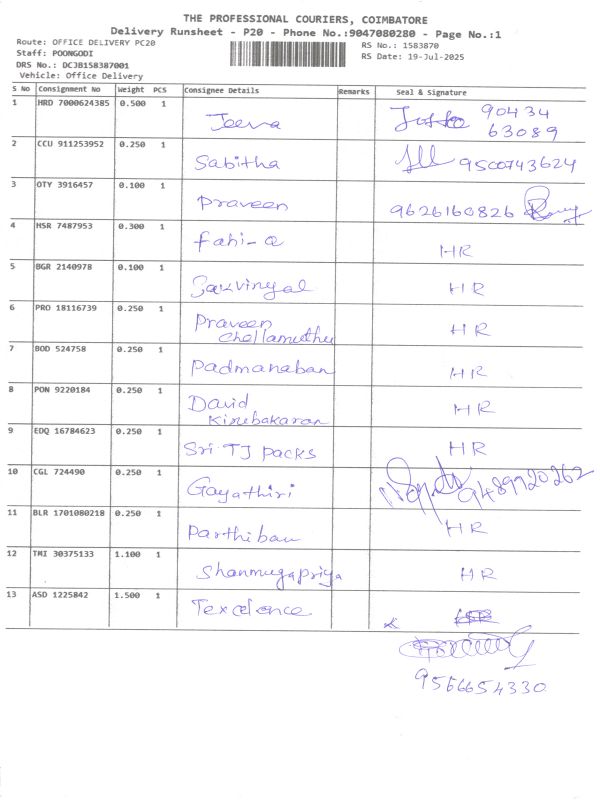 THE PROFESSIONAL COURIERS, COIMBATORE
Delivery Runsheet - P20 - Phone No.:9047080280 - Page No.:1
Route: OFFICE DELIVERY PC20
RS No.: 1583870
Staff: POONGODI
RS Date: 19-Jul-2025
DRS No.: DC3B158387001
Vehicle: Office Delivery
S No Consignment No Weight PCS Consignee Details Remarks Seal & Signature
1 HRD 7000624385 0.500 1 Jeeva 90434
63089
2 CCU 911253952 0.250 1 Sabitha 9500743624
3 OTY 3916457 0.100 1 Praveen 9626160826
4 HSR 7487953 0.300 1 HR
5 BGR 2140978 0.100 1 HR
6 PRO 18116739 0.250 1 Praveen HR
Chellamuthu
7 BOD 524758 0.250 1 Padmanaban HR
8 PON 9220184 0.250 1 David HR
Kirubakaran
9 EDQ 16784623 0.250 1 Sri TJ packs HR
10 CGL 724490 0.250 1 Gayathiri 9489720262
11 BLR 1701080218 0.250 1 Parthiban HR
12 TMI 30375133 1.100 1 Shanmugapriya HR
13 ASD 1225842 1.500 1 Texcelence
9566654330